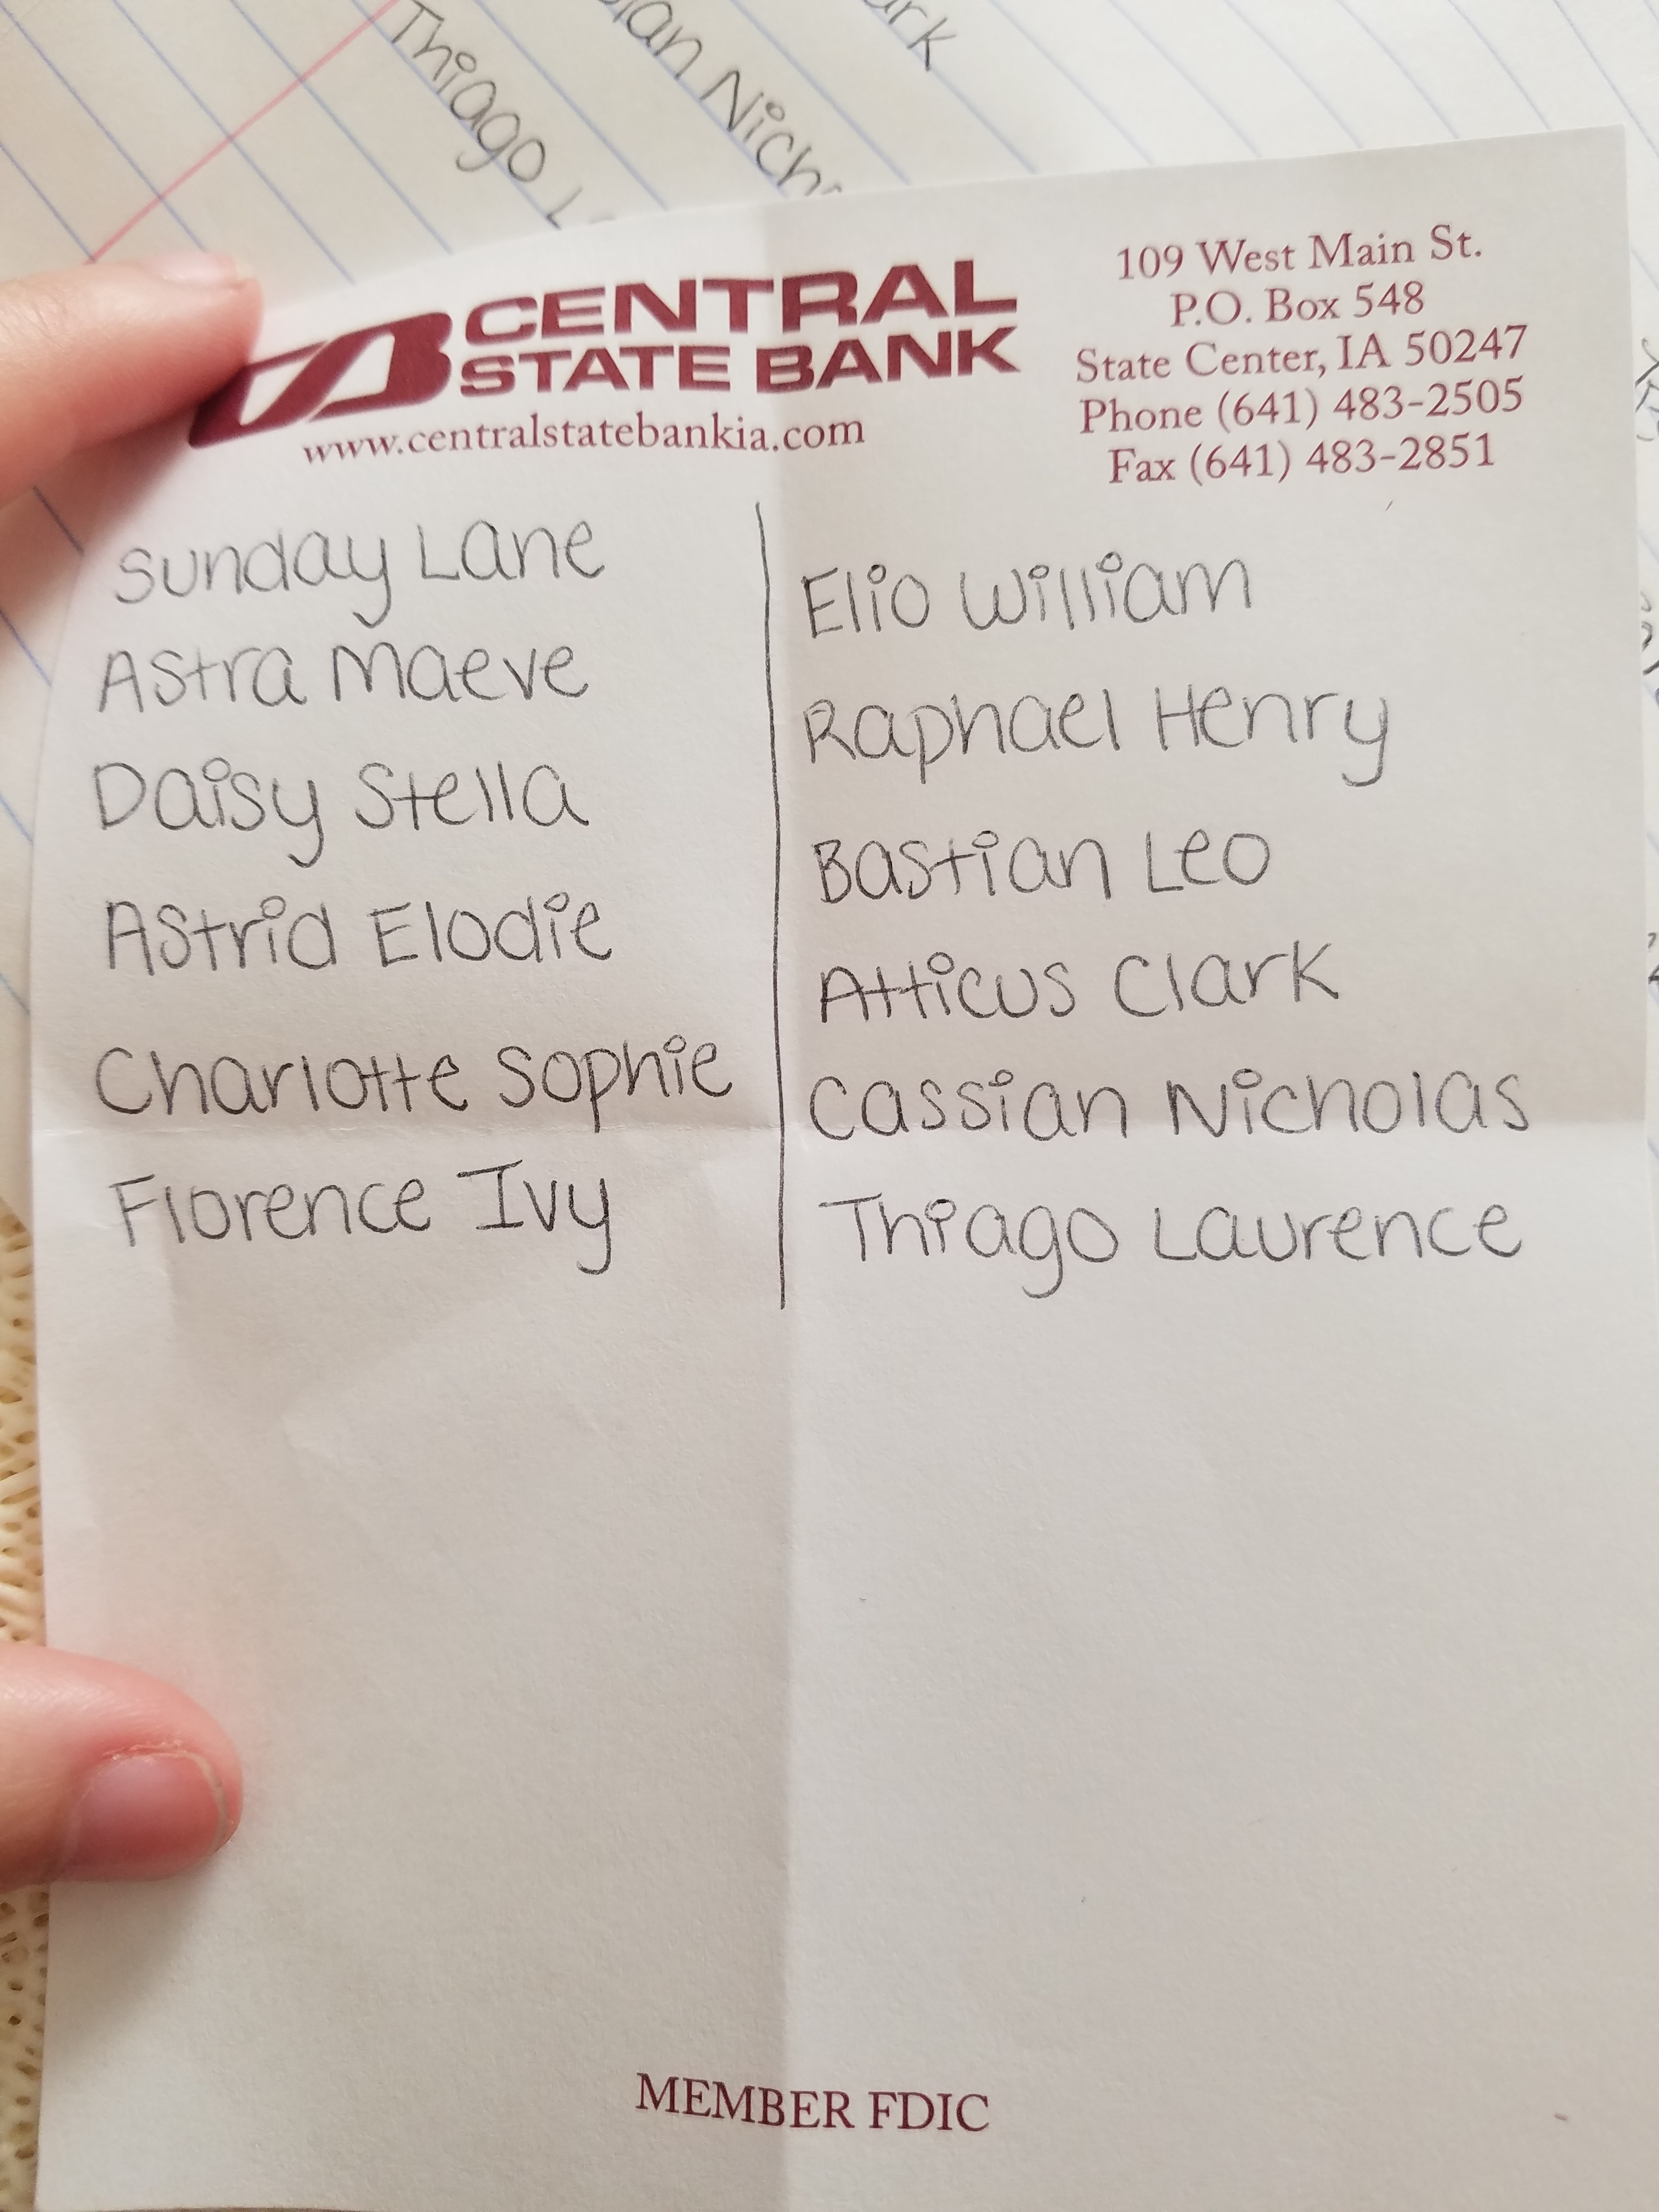 ark
ian Nich
Thiago L
CENTRAL
STATE BANK
www.centralstatebankia.com
109 West Main St.
P.O. Box 548
State Center, IA 50247
Phone (641) 483-2505
Fax (641) 483-2851
Sunday Lane
Astra Maeve
Daisy Stella
Astrid Elodie
Charlotte Sophie
Florence Ivy
Elio William
Raphael Henry
Bastian Leo
Atticus Clark
Cassian Nicholas
Thiago Laurence
MEMBER FDIC